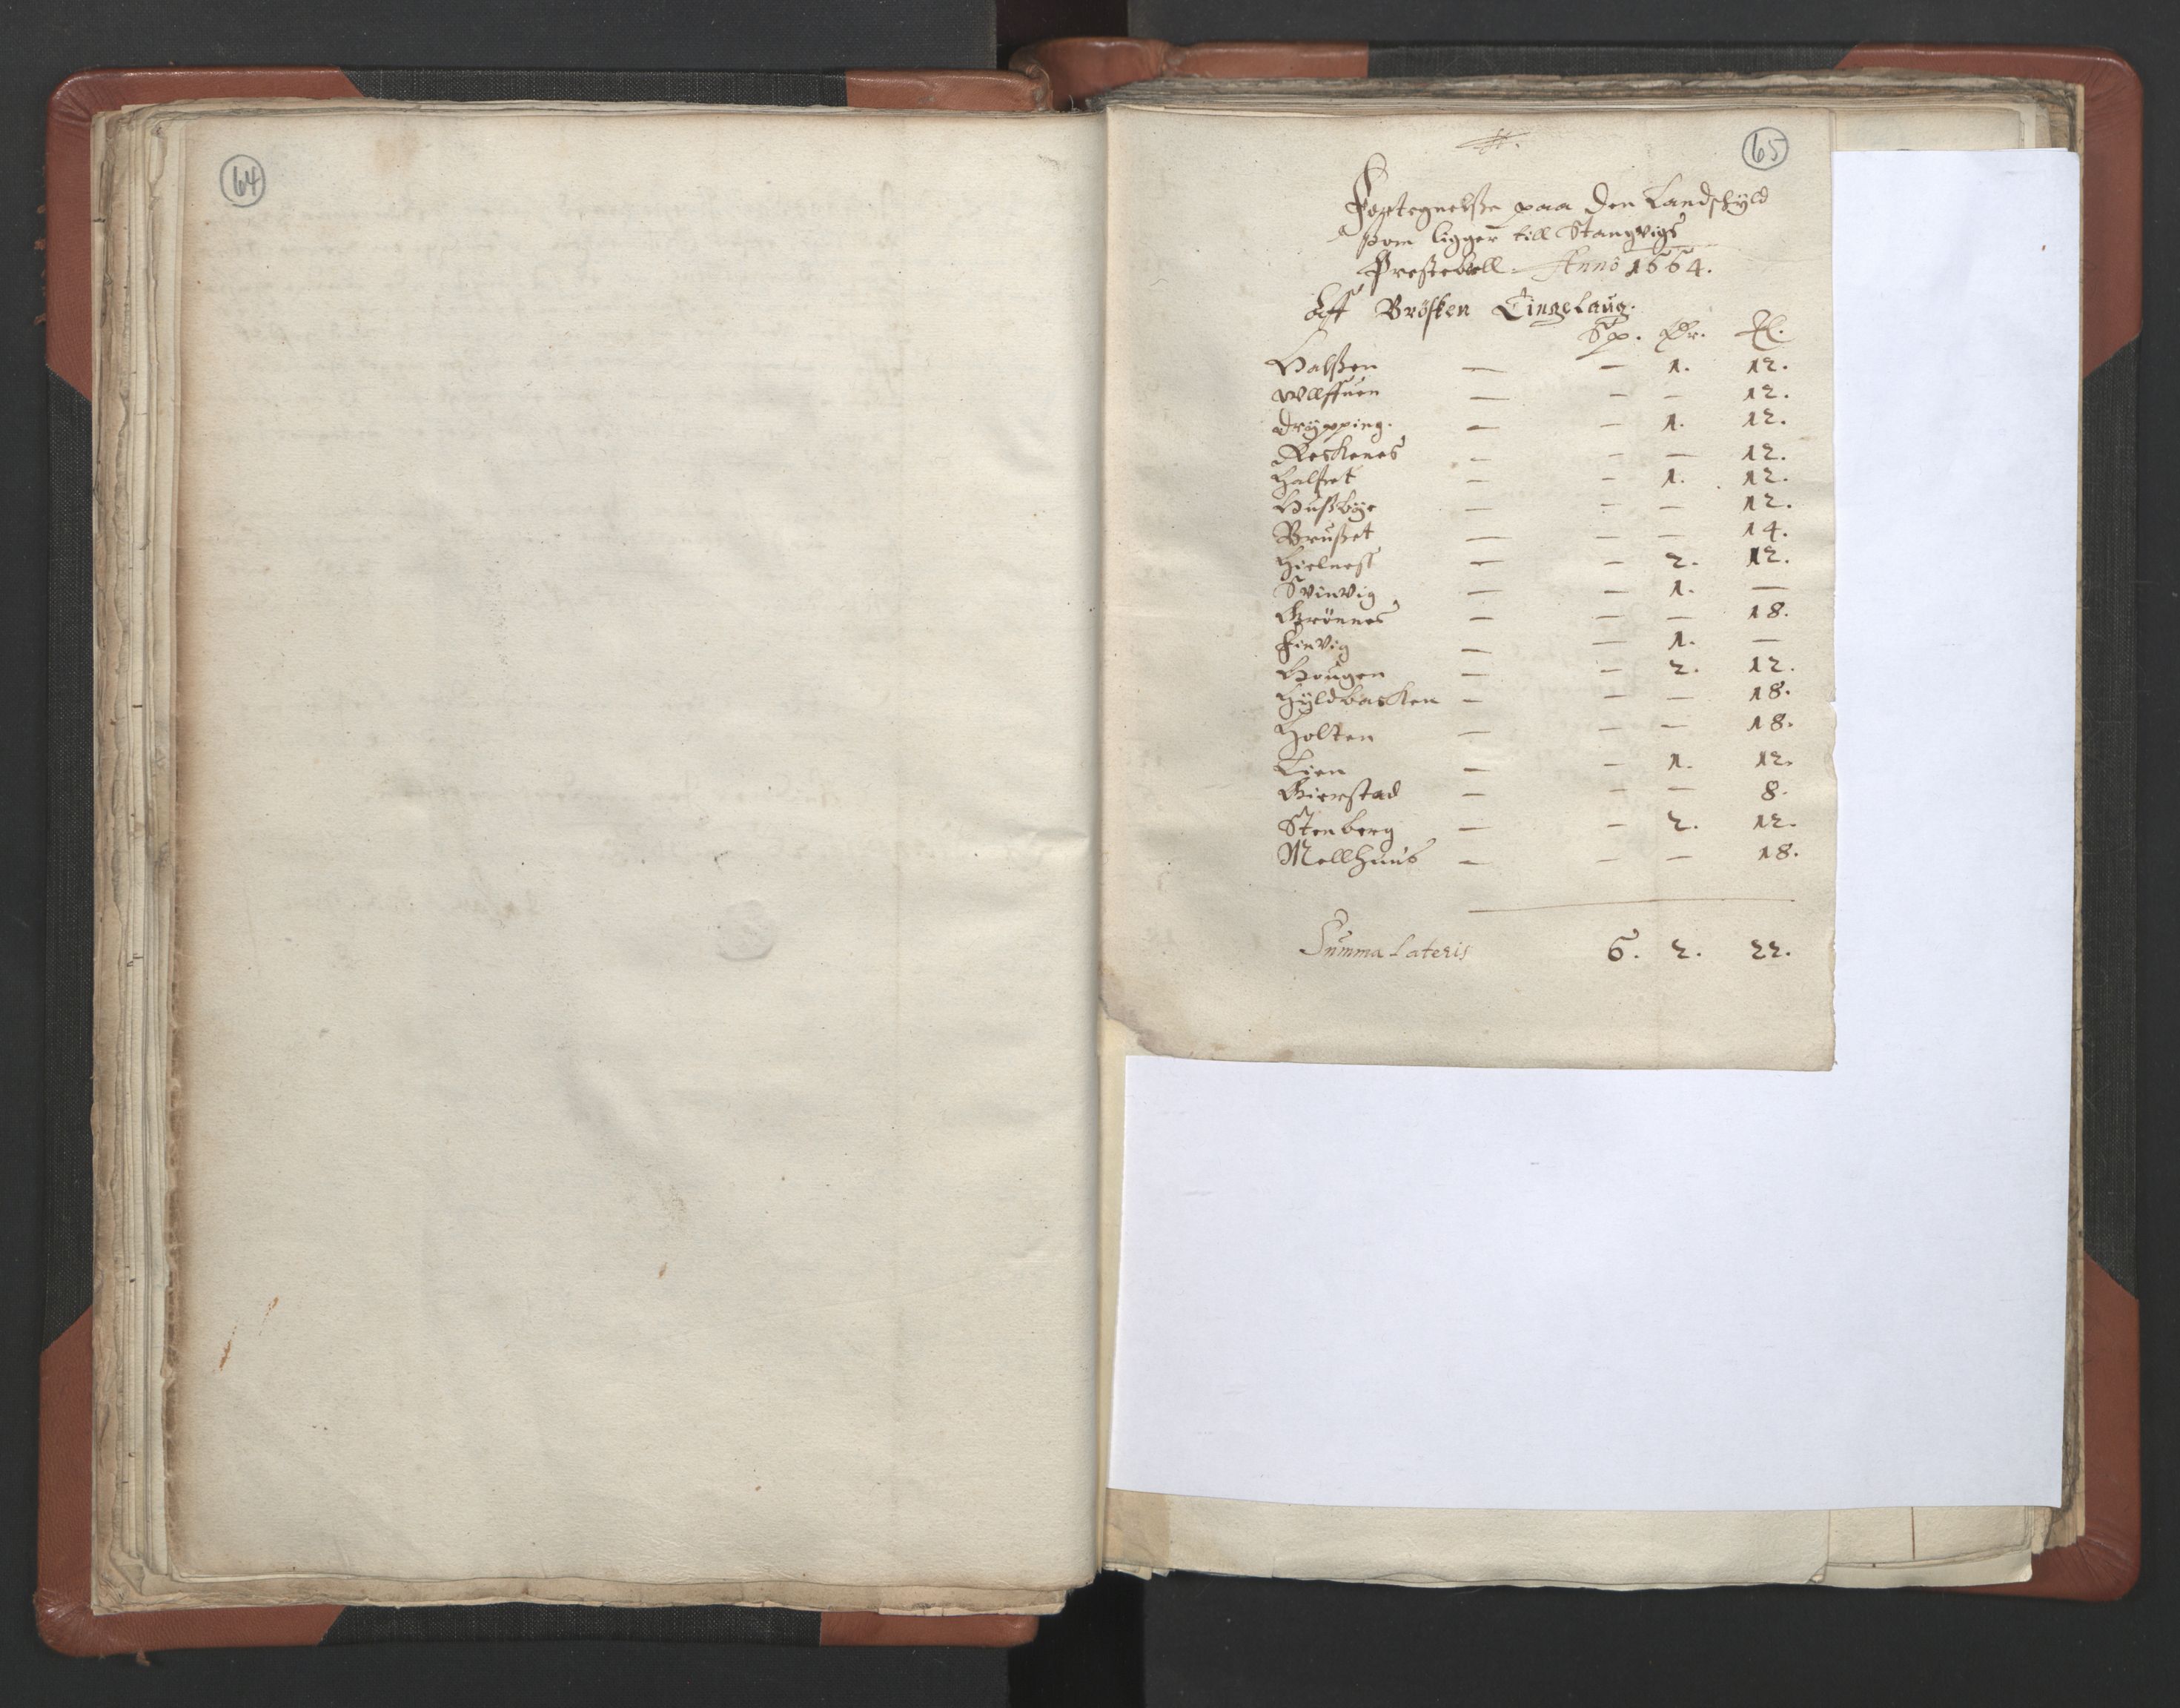 64
65
Fortegnelsse paa Den Landschyld
som ligger till Stangvigs
Presteboll. Anno 1664.
Aff Brøsken Tingelaug.
Sp. Ør. Mk.
Halssen — — 1. 12.
Wllffuen — — — 12.
drøpping. — — 1. 12.
Reskenes — — — 12.
Halset — — 1. 12.
Hussbye — — — 12.
Brusset — — — 14.
Hielness — — 2. 12.
Svinvig — — 1. —
Grönnes — — — 18.
Finvig — — 1. —
Hougen — — 2. 12.
Hyldbacken — — — 18.
Holten — — — 18.
Lien — — 1. 12.
Gierstad — — — 8.
Stenberg — — 2. 12.
Mellhuus — — — 18.
Summa Lateris 6. 2. 22.